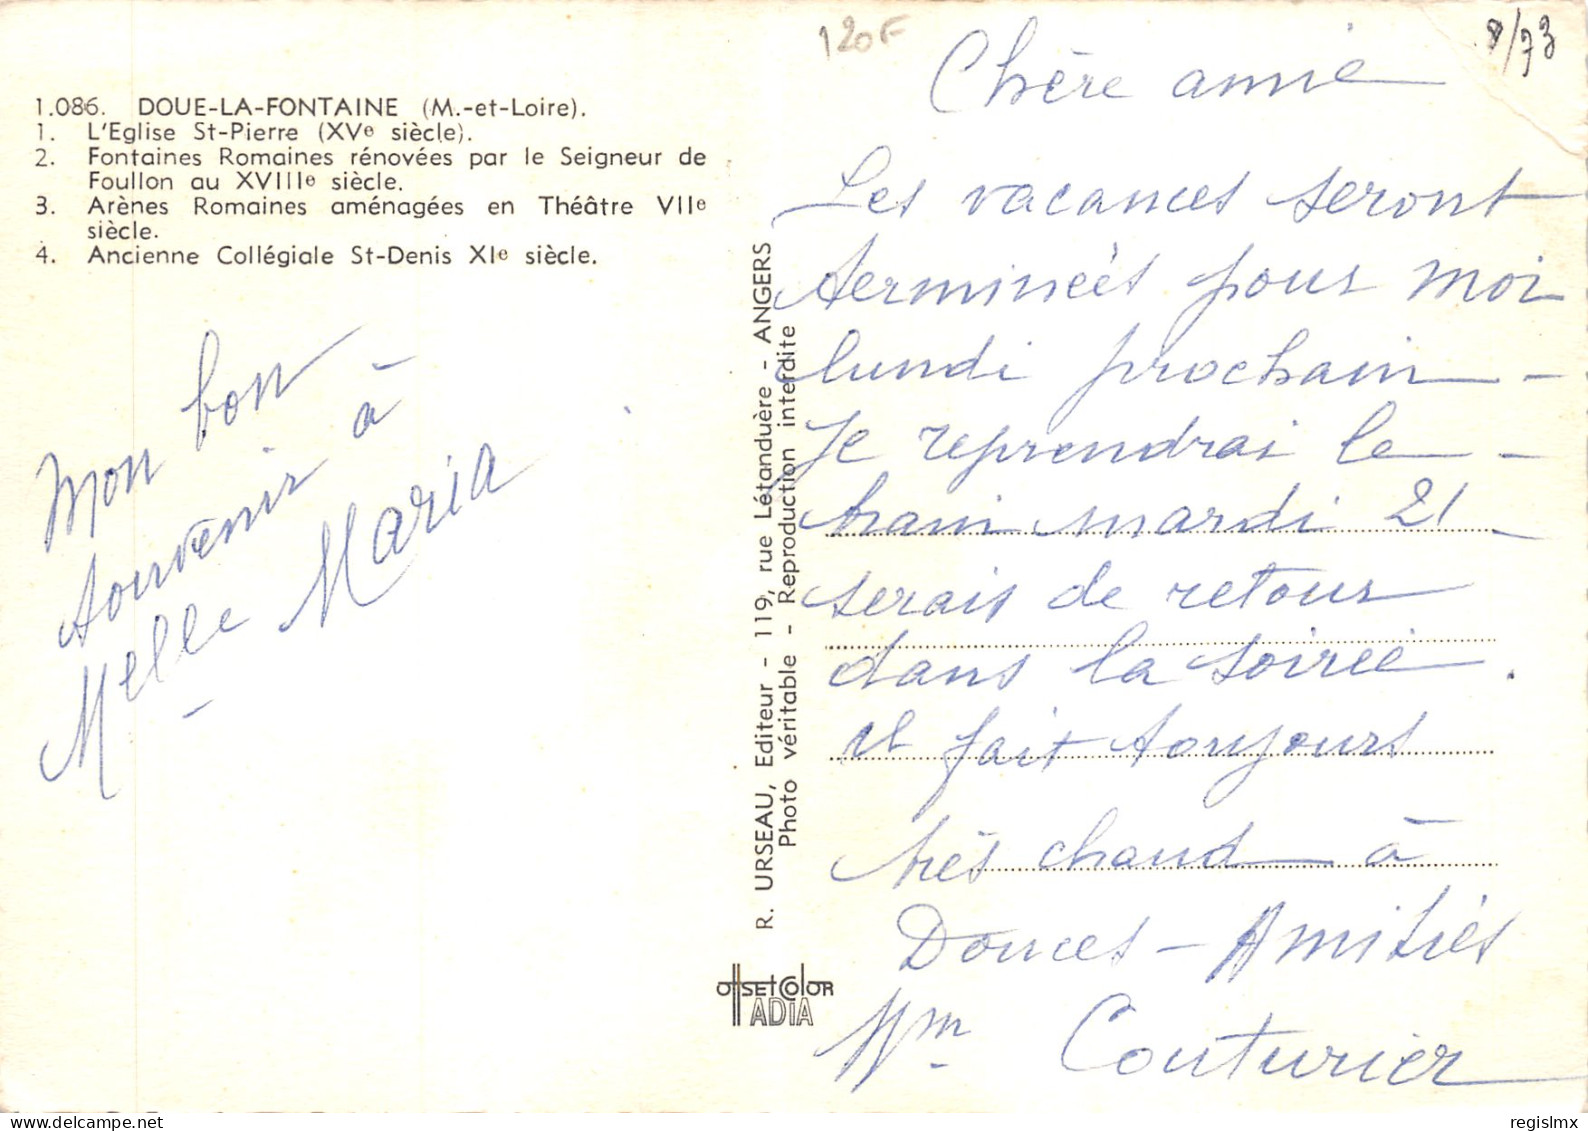 120F
8/73
1.086. DOUE-LA-FONTAINE (M.-et-Loire).
1. L'Eglise St-Pierre (XVe siècle).
2. Fontaines Romaines rénovées par le Seigneur de
Foullon au XVIIIe siècle.
3. Arènes Romaines aménagées en Théâtre VIIe
siècle.
4. Ancienne Collégiale St-Denis XIe siècle.
Mon bon
souvenir à
Melle Maria
R. URSEAU, Editeur - 119, rue Létanduère - ANGERS
Photo véritable - Reproduction interdite
OffSEtColoR
ADIA
Chère amie
Les vacances seront
terminées pour moi
lundi prochain -
Je reprendrai le -
train mardi 21 -
serais de retour
dans la soirée.
il fait toujours
très chaud à
Douces - Amitiés
Mm Couturier
regislmx